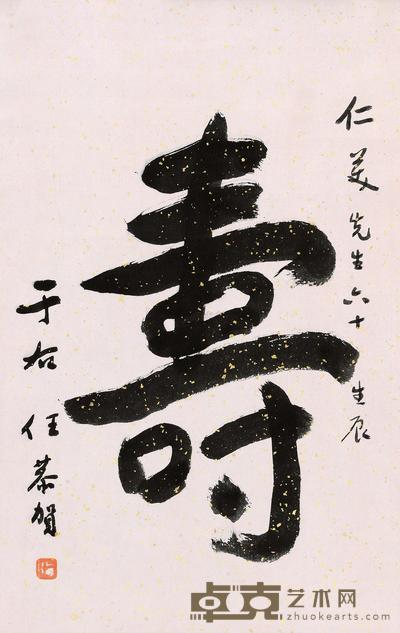 仁美先生六十生辰
壽
于右任恭賀
卓克艺术网
zhuokearts.com